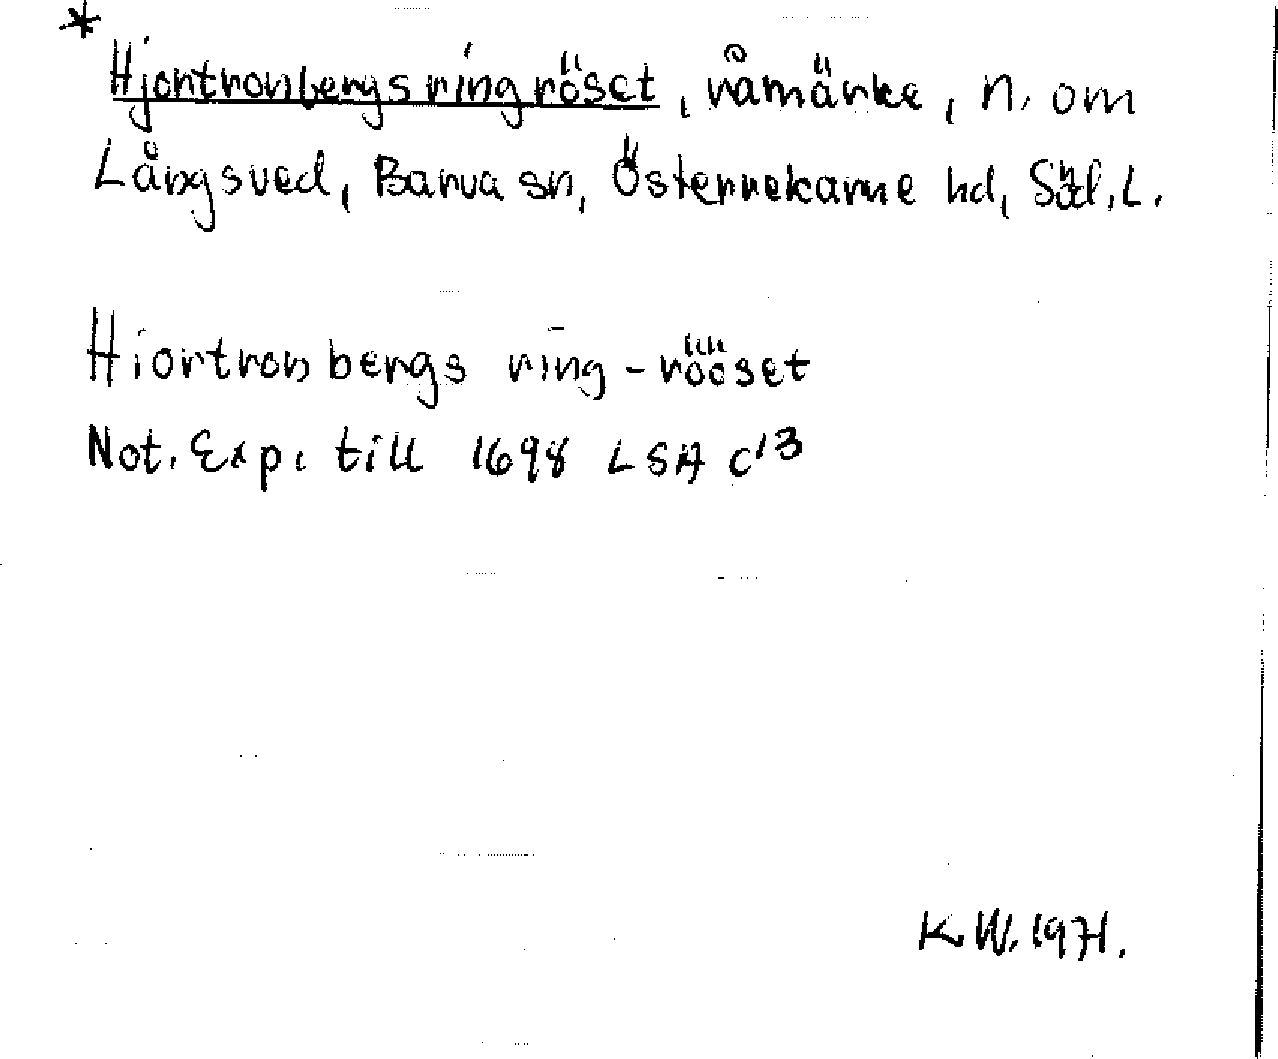 *
Hjortronbergs ringröset, råmärke, n. om
Långsved, Barva sn, Österrekarne hd, Söd.l.
Hiortronbergs ring-rööset
Not. Exp. till 1698 LSA C13
K.W. 1971.